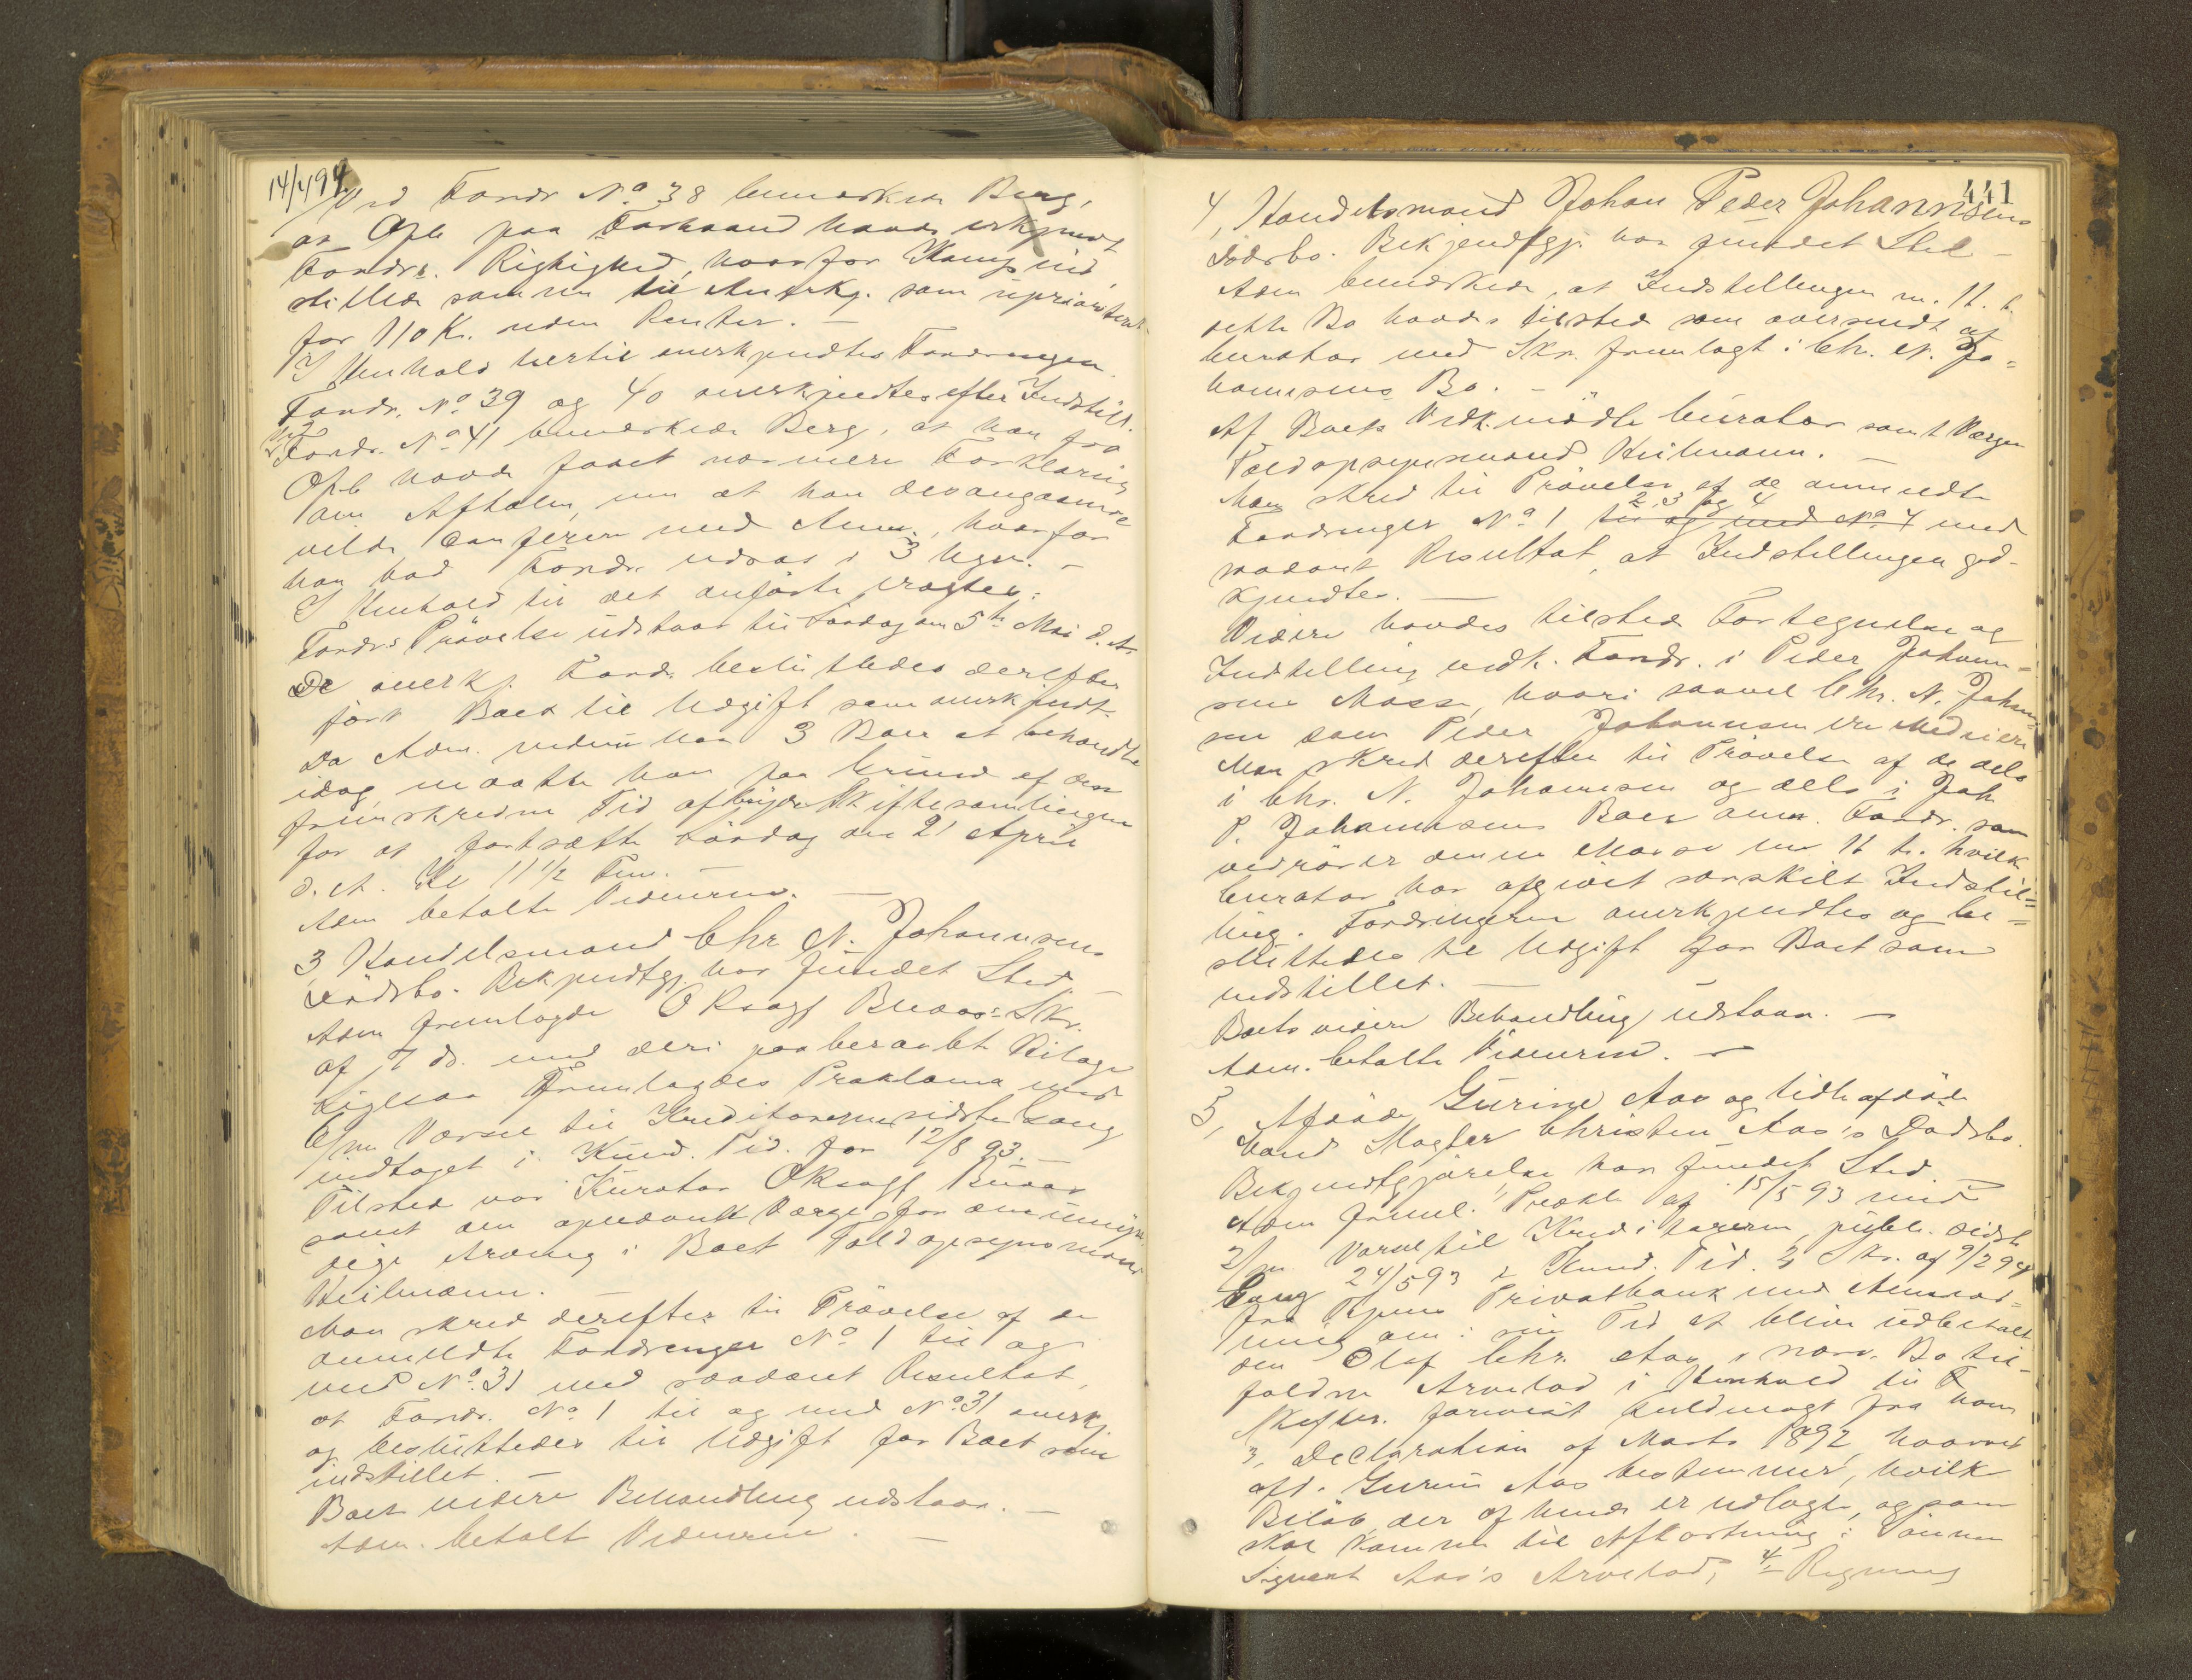 14/4 94
Ved Fordr. No 38 bemærkede Berg,
at Opb. paa Forhaand havde erkjendt
Fordrs. Rigtighed, hvorfor Kamp ind,
stillede samme til Anerkj. som uprioriteret
for 110 Kr. uden Renter. —
I Henhold hertil anerkjendtes Fordringen.
Fordr. No 39 og 40 anerkjendtes efter Indstill.
Ved Fordr. No 41 bemærkede Berg, at han fra
Opb havde faaet nærmere Forklaring
om Aftalen, men at han desangaaende
vilde conferere med Anm., hvorfor
han bad Fordr. udsat i 3 Uger. —
I Henhold til det anførte vragtes:
Fordrs Prøvelse udstaar til Lørdag den 5te Mai d. A.
De anerkj. Fordr. besluttedes derefter
ført Boet til Udgift som anerkjendt.
Da Adm. endnu har 3 Boer at behandle
idag, maatte han paa Grund af den
fremskredne Tid afbryde Skiftesamlingen
for at fortsætte Lørdag den 21 April
d. A. Kl 11 1/2 Fm. —
Adm betalte Vidnerne. —
3, Handelsmand Chr N. Johannsens
Dødsbo. Bekjendtgj. har fundet Sted. —
Adm fremlagde O Ksagf Buaas's Skr.
af 7 ds. med deri paaberaabt Bilage
Ligesaa fremlagdes Proklama med
6/m Varsel til Kreditorerne sidste Gang
indtaget i Kund. Tid. for 12/8 93. —
Tilstede var Kurator OKsagf Buaas
samt den opnævnte Værge for den umyn-
dige Arving i Boet Toldopsynsmand
Heilmann. —
Man skred derefter til Prøvelse af de
anmeldte Fordringer No 1 til og
med No 31 med saadant Resultat,
at Fordr. No 1 til og med No 31 anerkj
og besluttedes til Udgift for Boet som
indstillet. —
Boets videre Behandling udstaar. —
Adm. betalt Vidnerne. —
441
4, Handelsmand Johan Peder Johannsens
Dødsbo. Bekjendtgj. har fundet Sted —
Adm bemærkede, at Indstillingen m. H. t.
dette Bo havdes tilstede som oversendt af
Curator med Skr. fremlagt i Chr. N. Jo=
hannsens Bo. —
Af Boets Vedk. mødte Curator samt Værgen
Toldopsynsmand Heilmann. —
Man skred til Prøvelse af de anmeldte
Fordringer No 1 2, 3 og 4 til og med No 4 med
saadant Resultat, at Indstillingen god-
kjendtes. —
Videre havdes tilstede Fortegnelse og
Indstilling vedk. Fordr. i Peder Johann=
sens Masse, hvori saavel Chr. N. Johann
sen som Peder Johannsen var Medeiere
Man skred derefter til Prøvelse af de dels
i Chr. N. Johannsen og dels i Joh.
P. Johannsens Boer anm. Fordr. som
vedrører denne Masse m H. t. hvilke
Curator har afgivet særskilt Indstil=
ling. Fordringerne anerkjendtes og be=
sluttedes til Udgift for Boet som
indstillet. —
Boets videre Behandling udstaar. —
Adm. betalte Vidnerne. —
5, Afdøde Gurine Aas og tidl. afdøde
Mand Slagter Christen Aas's Dødsbo.
Bekjendtgjørelse har fundet Sted. —
Adm freml. 1, Prokl. af 15/5 93 med
2/m Varsel til Kreditorerne, publ. sidste
Gang 24/5 93 i Kund. Tid. 2, Skr. af 9/2 94
fra Privatbank med Anmod=
ning om i sin Tid at blive udbetalt
den Olaf Chr. Aas i nærv. Bo til-
faldne Arvelod i Henhold til
Skifter. forevist Fuldmagt fra ham
3, Declaration af Marts 1892, hvorved
afd. Gurine Aas bestemmer, hvilke
Beløb, der af hende er udlagte, og som
skal komme til Afkortning i Sønnen
Sigvart Aas's Arvelod, 4, Regning